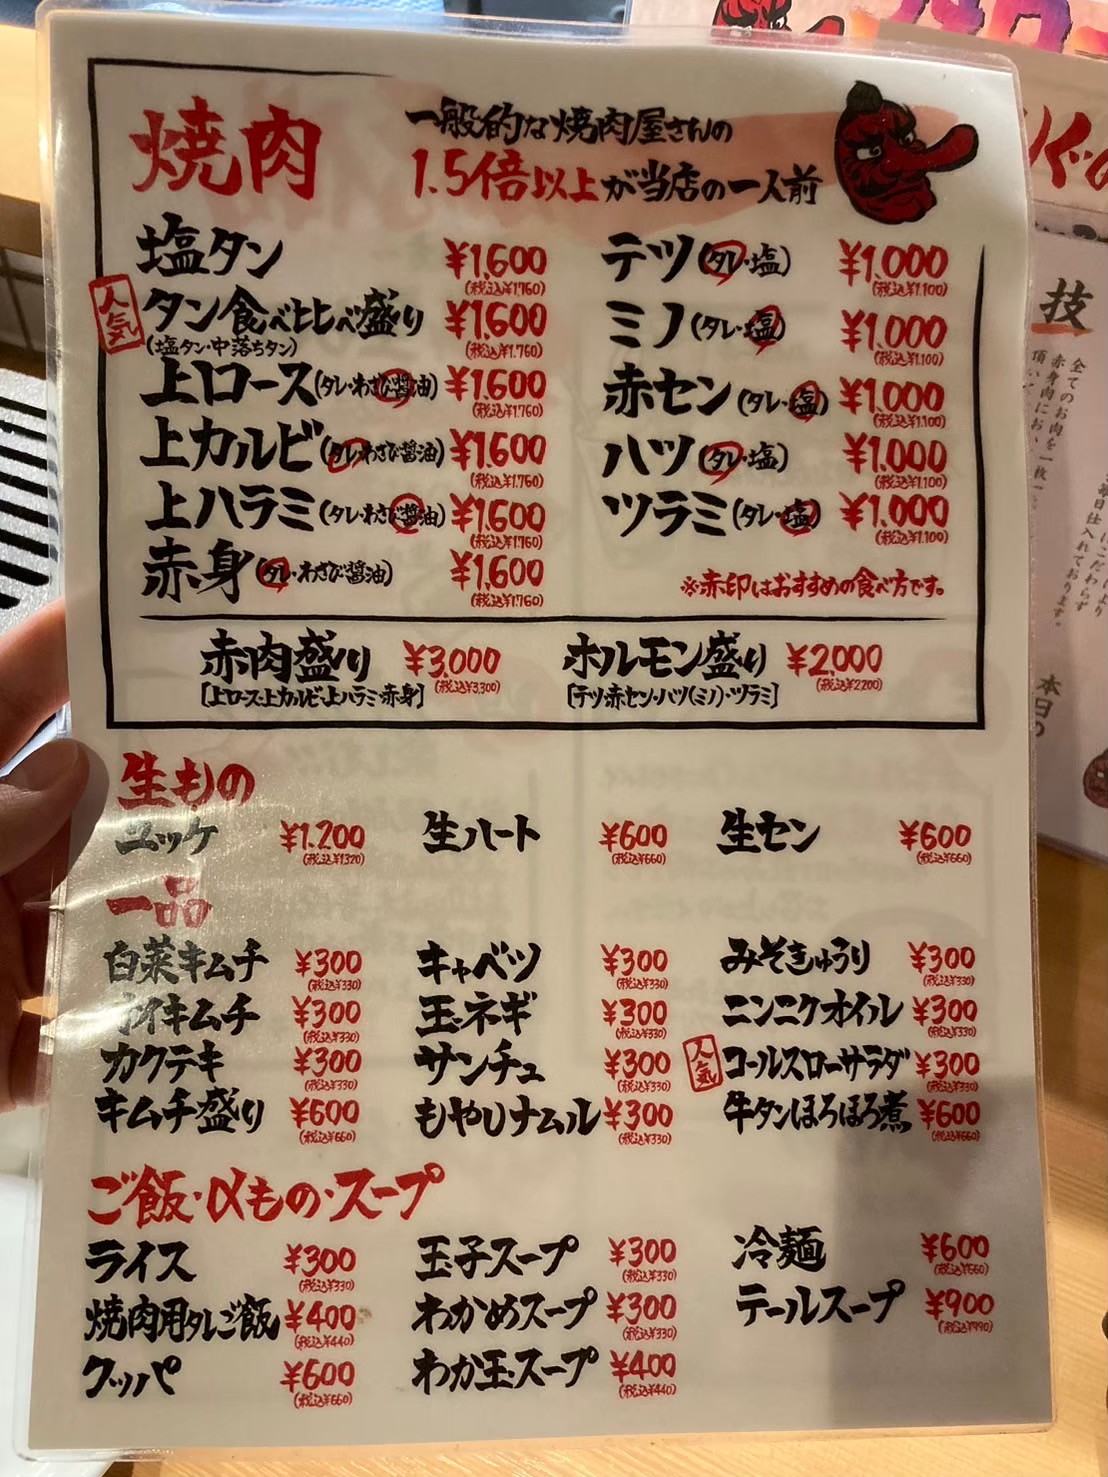 焼肉
一般的な焼肉屋さんの
1.5倍以上が当店の一人前
塩タン ¥1,600
(税込¥1,760)
人気
タン食べ比べ盛り ¥1,600
(塩タン・中落ちタン) (税込¥1,760)
上ロース(タレ・わさび醤油) ¥1,600
(税込¥1,760)
上カルビ(タレ・わさび醤油) ¥1,600
(税込¥1,760)
上ハラミ(タレ・わさび醤油) ¥1,600
(税込¥1,760)
赤身(タレ・わさび醤油) ¥1,600
(税込¥1,760)
テツ(タレ・塩) ¥1,000
(税込¥1,100)
ミノ(タレ・塩) ¥1,000
(税込¥1,100)
赤セン(タレ・塩) ¥1,000
(税込¥1,100)
ハツ(タレ・塩) ¥1,000
(税込¥1,100)
ツラミ(タレ・塩) ¥1,000
(税込¥1,100)
※赤印はおすすめの食べ方です。
赤肉盛り ¥3,000
[上ロース・上カルビ・上ハラミ・赤身] (税込¥3,300)
ホルモン盛り ¥2,000
[テツ・赤セン・ハツ(ミノ)・ツラミ] (税込¥2,200)
生もの
ユッケ ¥1,200
(税込¥1,320)
生ハート ¥600
(税込¥660)
生セン ¥600
(税込¥660)
一品
白菜キムチ ¥300
(税込¥330)
オイキムチ ¥300
(税込¥330)
カクテキ ¥300
(税込¥330)
キムチ盛り ¥600
(税込¥660)
キャベツ ¥300
(税込¥330)
玉ネギ ¥300
(税込¥330)
サンチュ ¥300
(税込¥330)
もやしナムル ¥300
(税込¥330)
みそきゅうり ¥300
(税込¥330)
ニンニクオイル ¥300
(税込¥330)
人気
コールスローサラダ ¥300
(税込¥330)
牛タンほろほろ煮 ¥600
(税込¥660)
ご飯・〆もの・スープ
ライス ¥300
(税込¥330)
焼肉用タレご飯 ¥400
(税込¥440)
クッパ ¥600
(税込¥660)
玉子スープ ¥300
(税込¥330)
わかめスープ ¥300
(税込¥330)
わか玉スープ ¥400
(税込¥440)
冷麺 ¥600
(税込¥660)
テールスープ ¥900
(税込¥990)
技
全てのお肉を
赤身肉において一枚一
頂い
毎日仕入れております。
にこだわらず
本日の